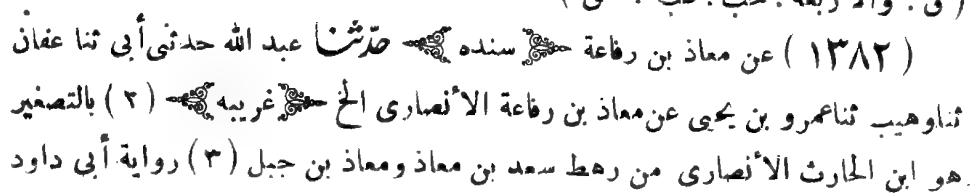 ( ١٣٨٢ ) عن معاذ بن رفاعة سنده حدّثنا عبد الله حدثنى أبى ثنا عفان
ثنا وهيب ثنا عمرو بن يحيى عن معاذ بن رفاعة الأنصارى الخ غريبه ( ٢ ) بالتصغير
هو ابن الحارث الأنصارى من رهط سعد بن معاذ ومعاذ بن جبل ( ٣ ) رواية أبى داود